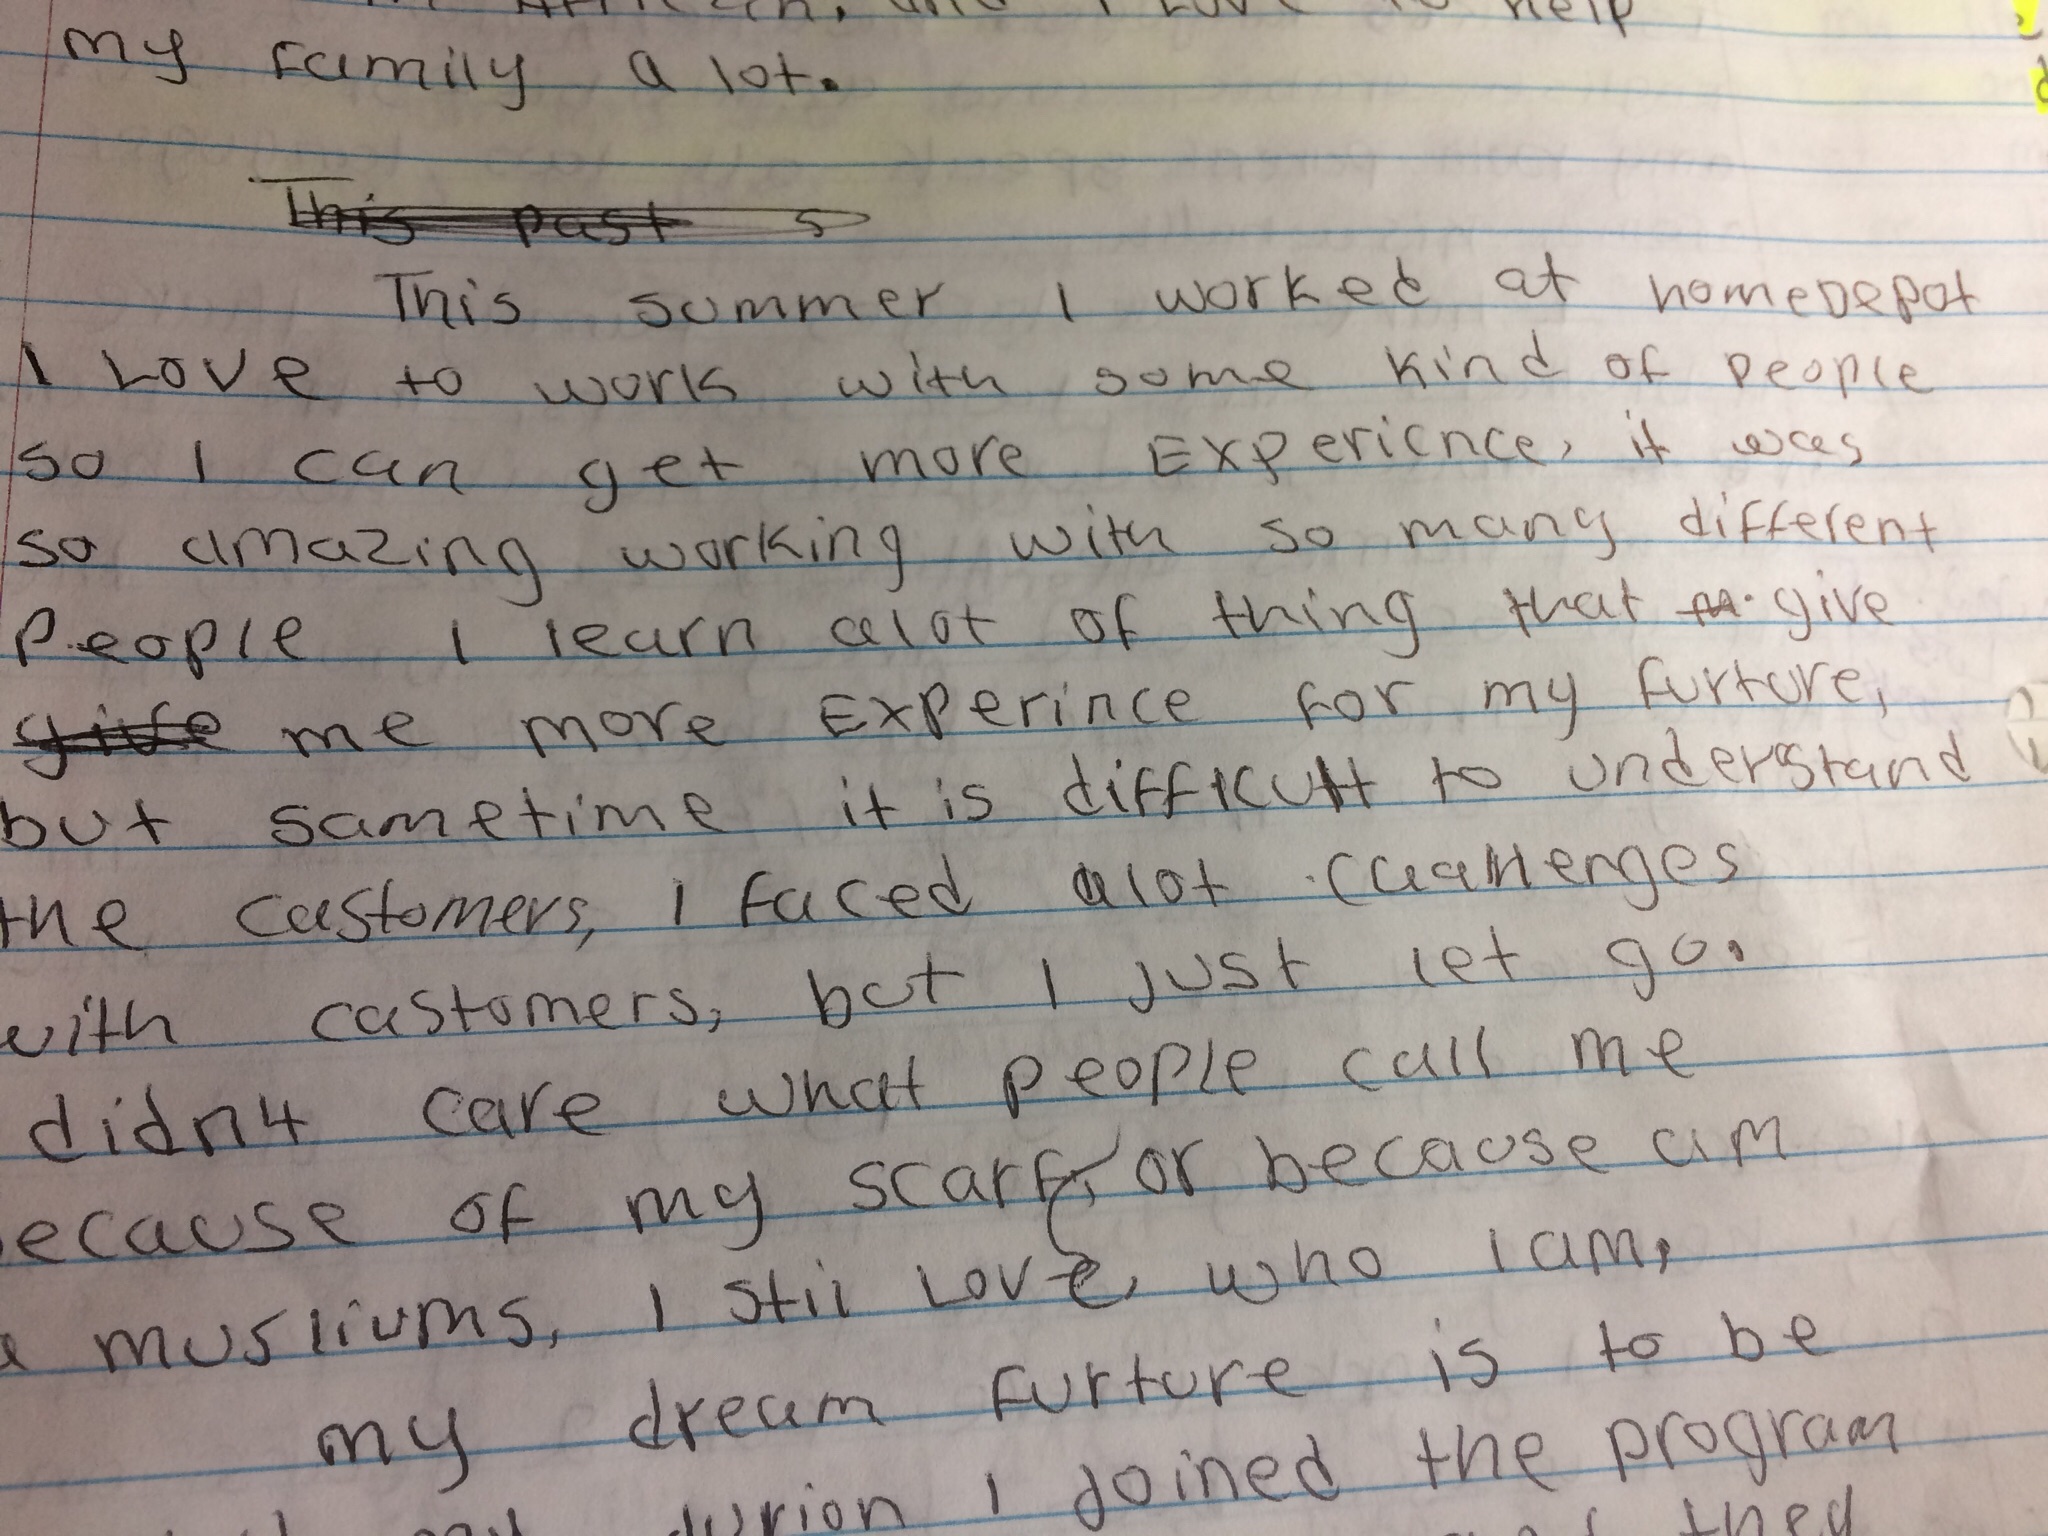 African, and I Love to help
my family a lot.
This past s
This summer I worked at homeDepot
I Love to work with some kind of people
so I can get more Experience, it was
so amazing working with so many different
People I learn alot of thing that give
give me more Experince for my furture,
but sametime it is difficult to understand
the castomers, I faced alot challenges
with castomers, but I just let go.
didn4t care what people call me
ecause of my scarf, or because am
a musliums, I still Love, who I am,
my dream furture is to be
I Joined the program
they